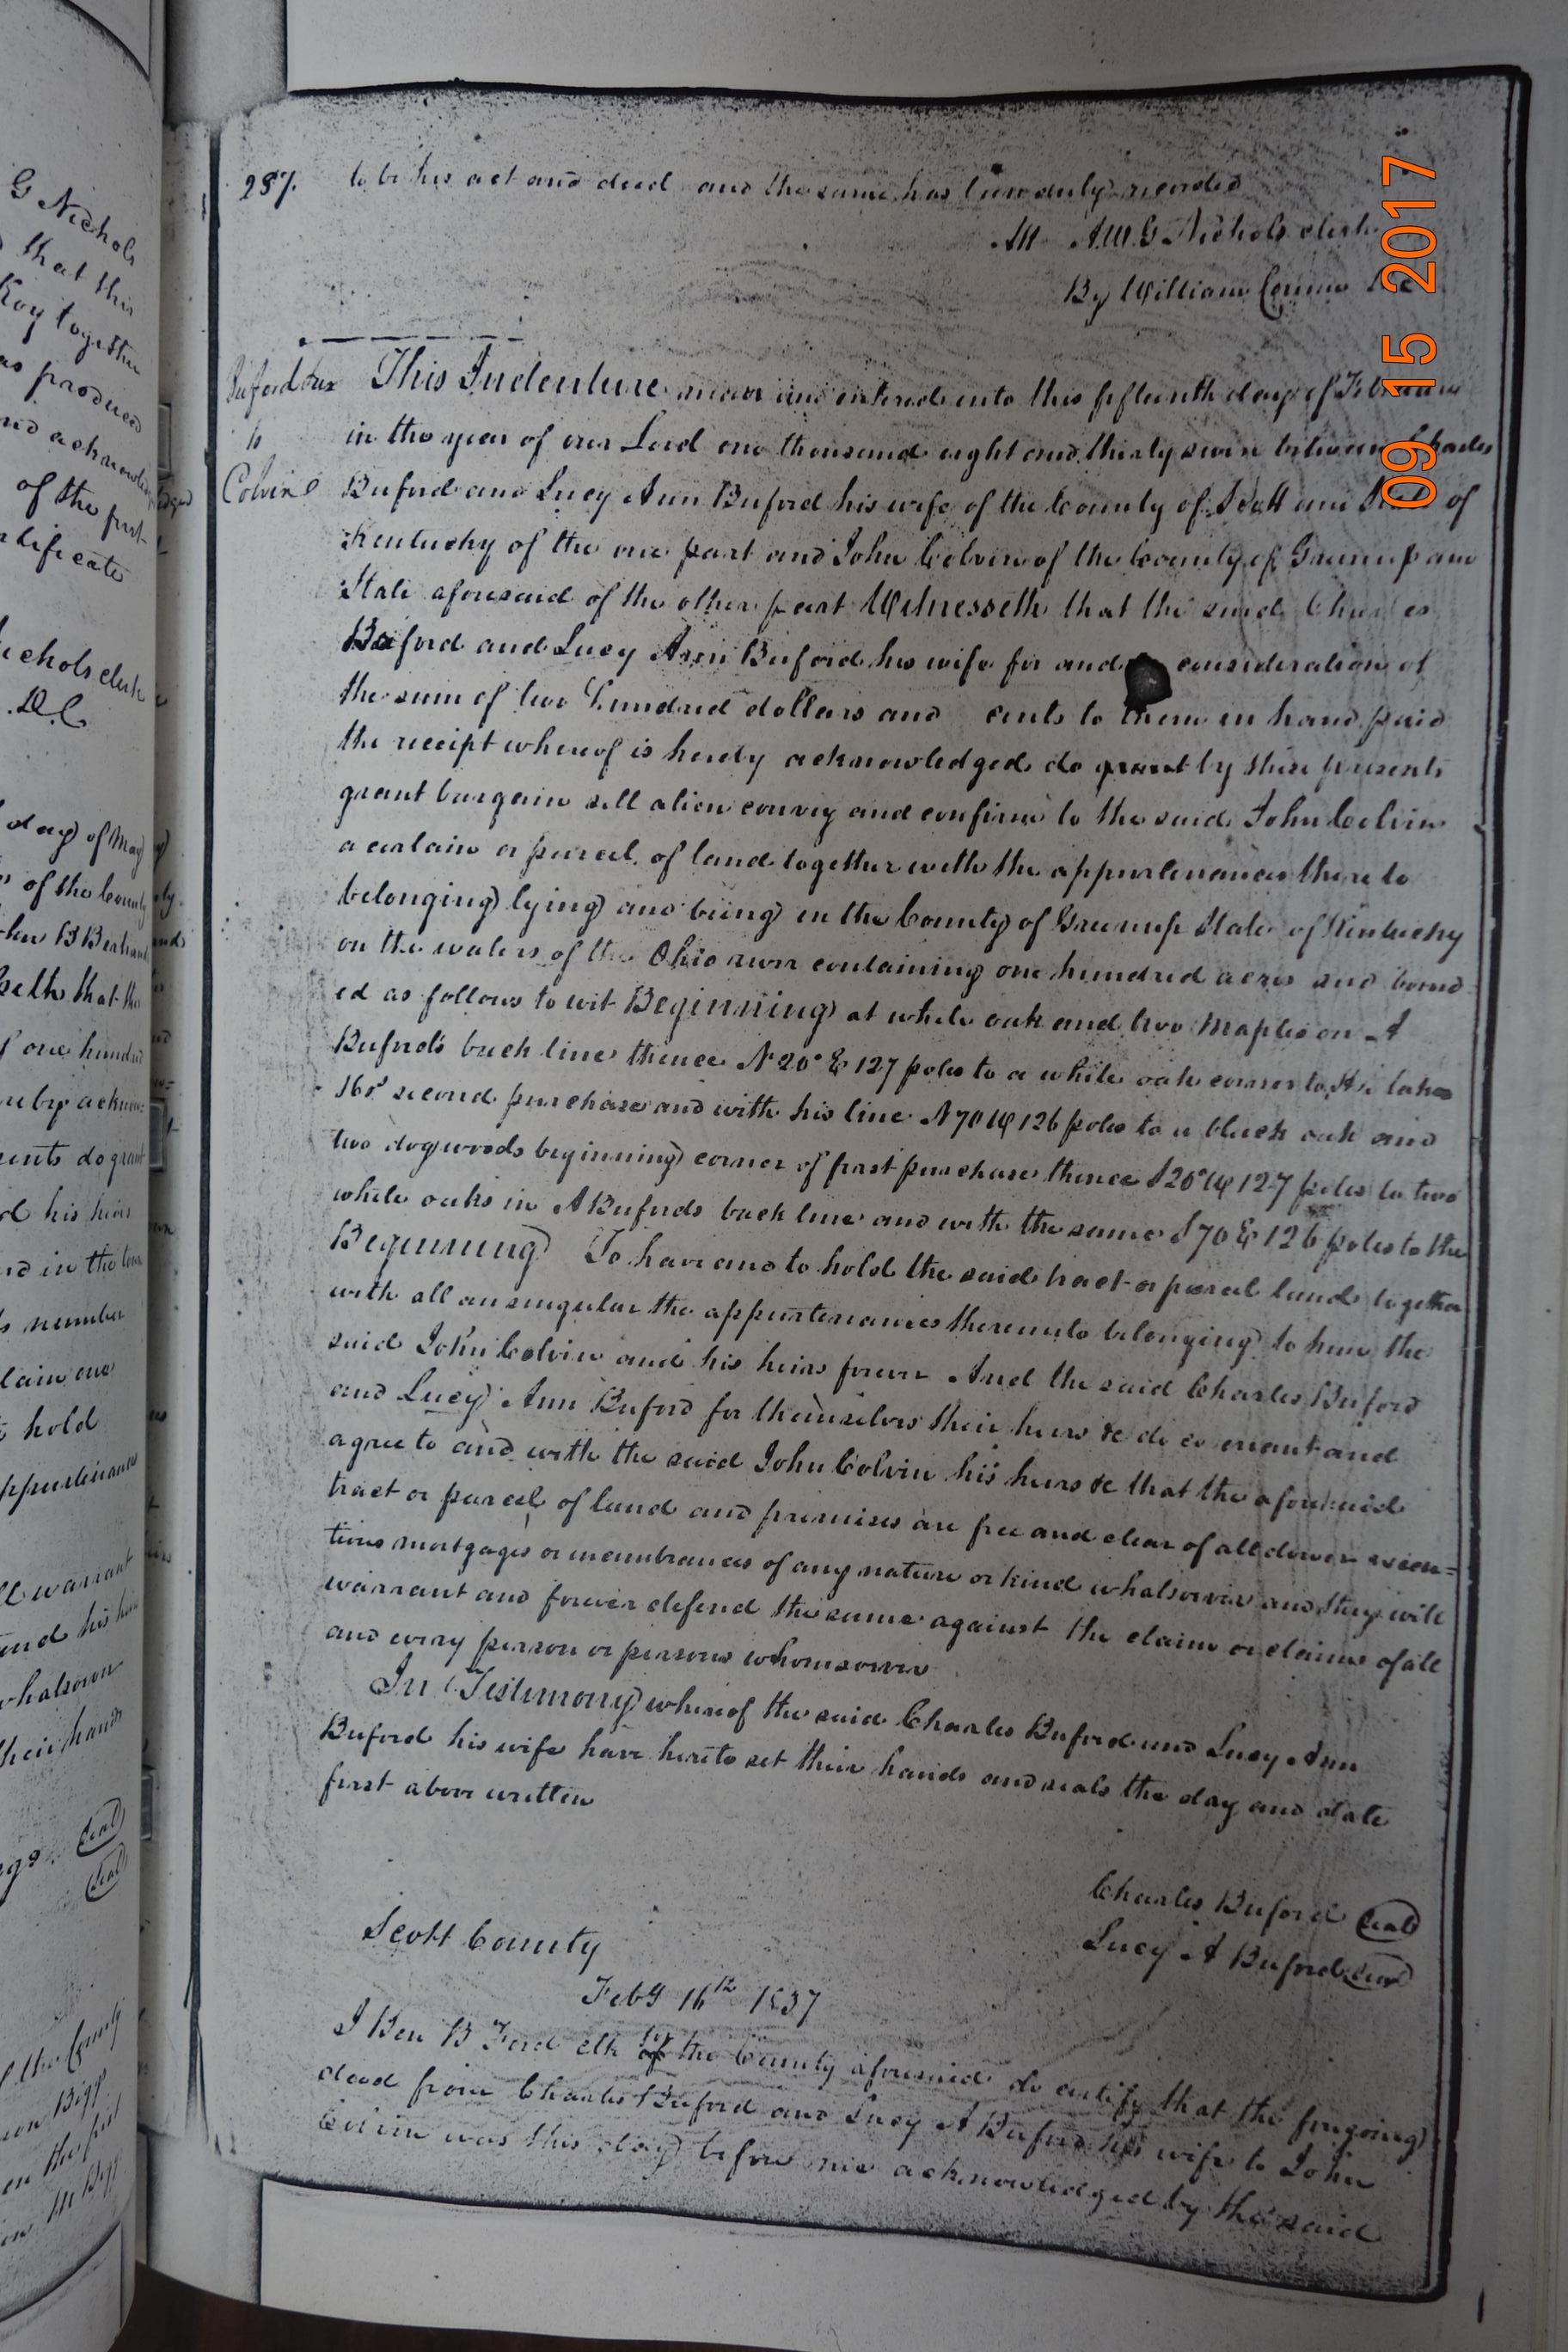 287. to be his act and deed and the same has been duly recorded
Att A.W.G Nichols clerk
By William Corum D C
Buford & ux
to
Colvin
This Indenture made and entered into this fifteenth day of February
in the year of our Lord one thousand eight and thirty seven between Charles
Buford and Lucy Ann Buford his wife of the County of Scott and State of
Kentucky of the one part and John Colvin of the County of Greenup and
State aforesaid of the other part Witnesseth that the said Charles
Buford and Lucy Ann Buford his wife for and consideration of
the sum of two hundred dollars and cents to them in hand paid
the receipt whereof is hereby acknowledged do by these presents
grant bargain sell alien convey and confirm to the said John Colvin
a certain a parcel of land together with the appurtenances there to
belonging lying and being in the County of Greenup State of Kentucky
on the waters of the Ohio river containing one hundred acres and bound
ed as follows to wit Beginning at white oak and two maples on A
Bufords back line thence N 20° E 127 poles to a white oak corner to
second purchase and with his line N 70 W 126 poles to a black oak and
two dogwoods beginning corner of first purchase thence S 20° W 127 poles to two
white oaks in A Bufords back line and with the same S 70 E 126 poles to the
Beginning To have and to hold the said tract or parcel land together
with all an singular the appurtenances thereunto belonging to him the
said John Colvin and his heirs forever And the said Charles Buford
and Lucy Ann Buford for themselves their heirs &c do covenant and
agree to and with the said John Colvin his heirs &c that the aforesaid
tract or parcel of land and premises are free and clear of all dower execu=
tions mortgages or incumbrances of any nature or kind whatsoever and they will
warrant and forever defend the same against the claim or claims of all
and every person or persons whomsoever
In Testimony whereof the said Charles Buford and Lucy Ann
Buford his wife have hereto set their hands and seals the day and date
first above written
Charles Buford seal
Lucy A Buford seal
Scott County
Feby 16th 1837
I Ben B Ford clk of the County aforesaid do certify that the foregoing
deed from Charles Buford and Lucy A Buford his wife to John
Colvin was this day before me acknowledged by the said
09 15 2017
G Nichols
that this
Roy together
as produced
and acknowledged
of the first
tificate
Nichols clerk
D.C
day of May
of the County
seth that the
of one hundred
reby acknow=
sents do grant
d his heirs
nd in the town
s number
tain one
to hold
appurtenances
ll warrant
and his heirs
whatsoever
their hands
seal
seal
of the County